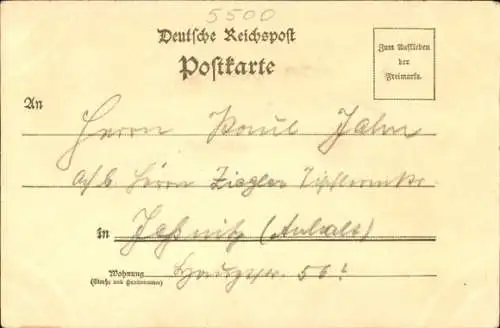 5500
Deutsche Reichspost
Postkarte
Zum Aufkleben
der
Freimarke.
An
Herrn Paul Jahn
a/b. Herrn Ziegler
in Jeßnitz (Anhalt)
Wohnung 56 I
(Straße und Hausnummer)